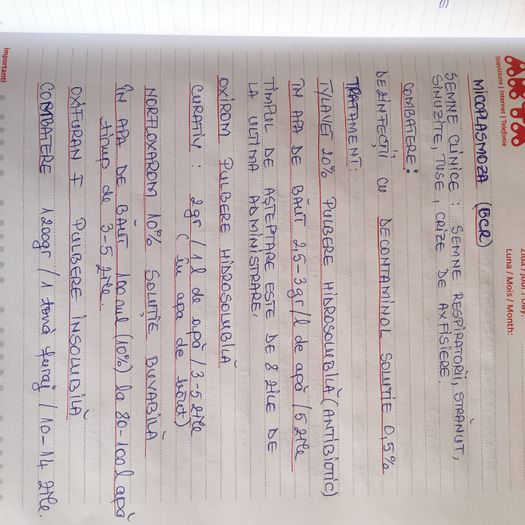 Televiziune | Internet | Telefonie
Ziua / Jour / Day:
Luna / Mois / Month:
Importanti
MICOPLASMOZA (BCR)
SEMNE CLINICE : SEMNE RESPIRATORII, STRĂNUT,
SINUZITE, TUSE, CRIZE DE AXFISIERE.
COMBATERE:
DEZINFECȚII CU DECONTAMINOL SOLUTIE 0,5%
TRATAMENT:
TYLAVET 20% PULBERE HIDROSOLUBILĂ (ANTIBIOTIC)
ÎN APA DE BĂUT 2,5-3gr/l de apă / 5 zile
TIMPUL DE AȘTEPTARE ESTE DE 8 ZILE DE
LA ULTIMA ADMINISTRARE.
OXIDOM PULBERE HIDROSOLUBILĂ
CURATIV : 2gr / 1l de apă / 3-5 zile
(în apa de băut)
NORFLOXAROM 10% SOLUTIE BUVABILĂ
ÎN APA DE BĂUT 100ml (10%) la 80-100l apă
timp de 3-5 zile.
OXIFURAN F PULBERE INSOLUBILĂ
COMBATERE 1200gr / 1 tonă furaj / 10-14 zile.